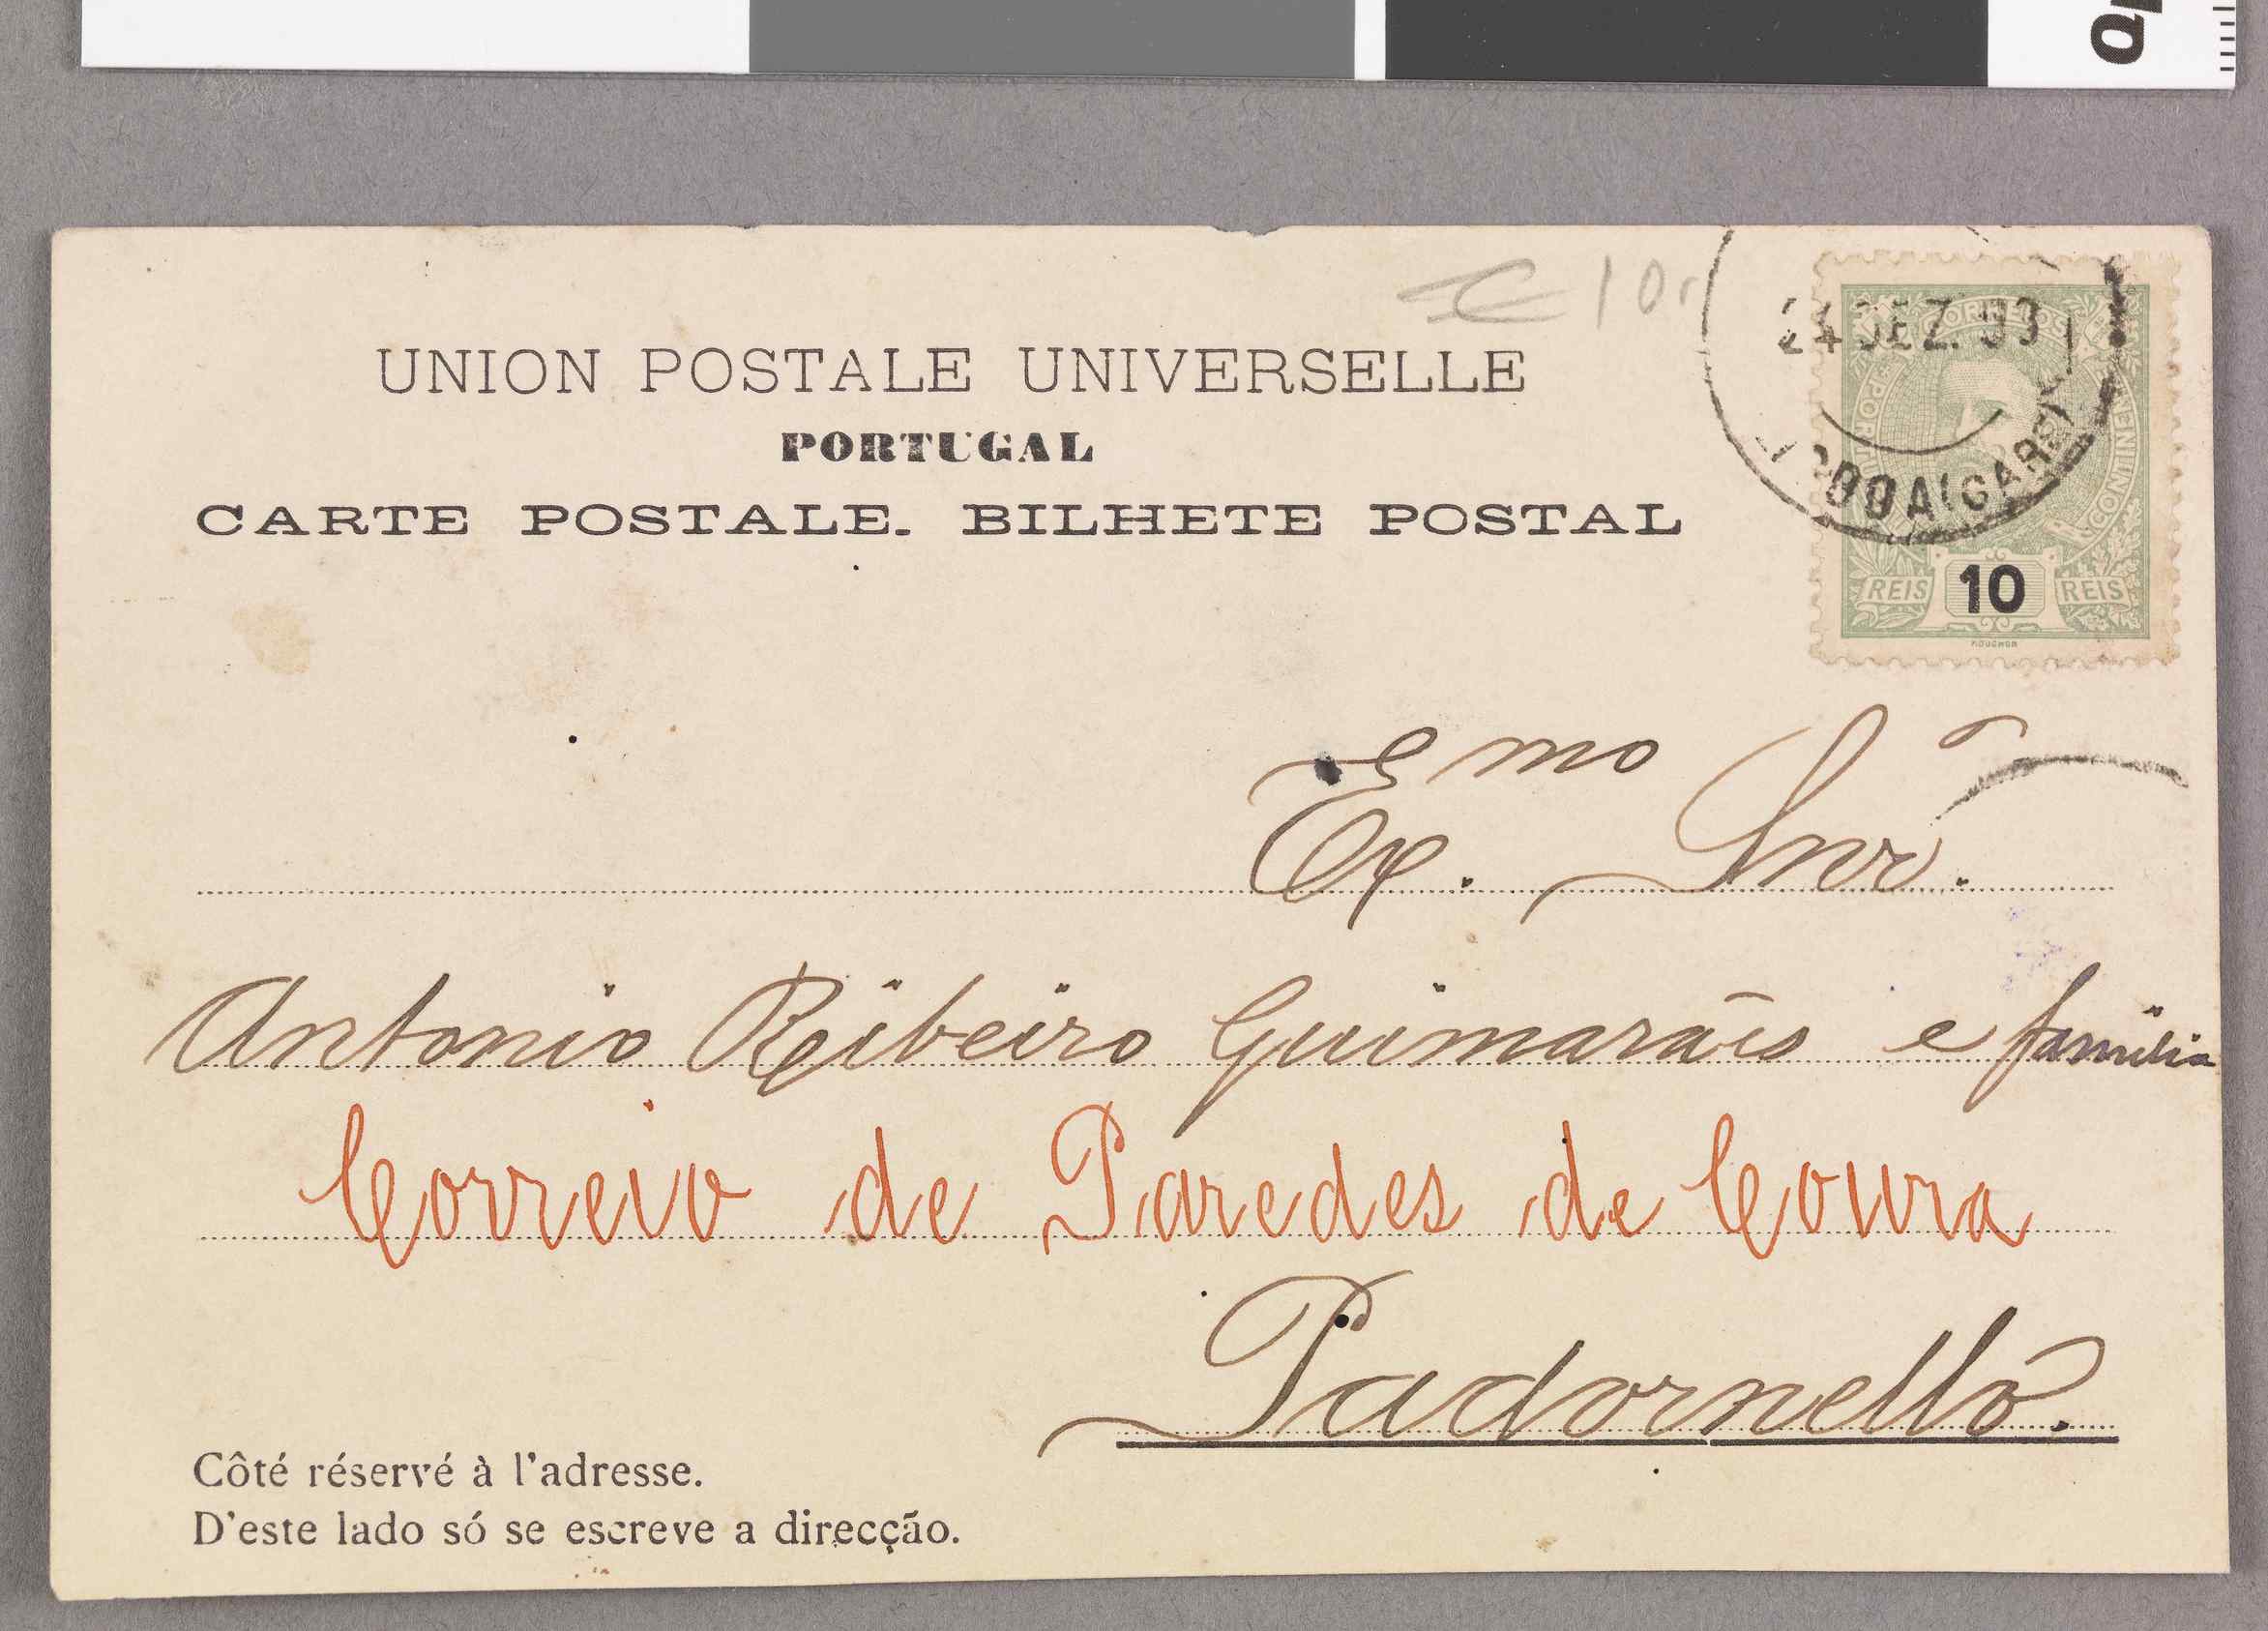 UNION POSTALE UNIVERSELLE
PORTUGAL
CARTE POSTALE. BILHETE POSTAL
10r
24 DEZ. 03
CORREIOS
CONTINENTE
REIS 10 REIS
MOUCHON
Exmo. Snr.
Antonio Ribeiro Guimarães e familia
Correio de Paredes de Coura
Padornello.
Côté réservé à l'adresse.
D'este lado só se escreve a direcção.